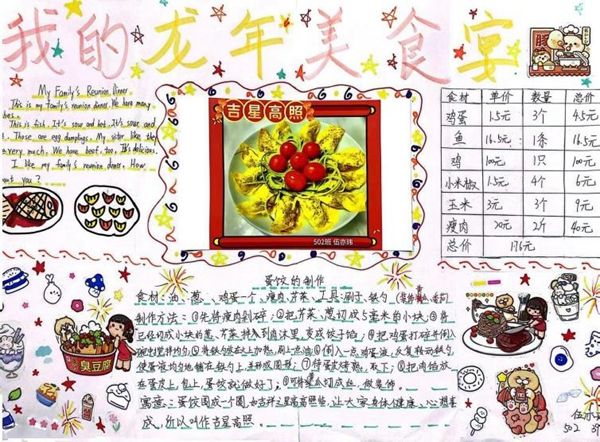 我的龙年美食宴
My Family's Reunion Dinner
This is my family's reunion dinner. We have many
This is fish. It's sour and hot. It's sour and
Those are egg dumplings. My sister like the
very much. We have beef, too. It's delicious.
I like my family's reunion dinner. How
out you?
吉星高照
502班 伍亦玮
食材 单价 数量 总价
鸡蛋 1.5元 3个 4.5元
鱼 16.5元 1条 16.5元
鸡 100元 1只 100元
小米椒 1.5元 4个 6元
玉米 3元 3个 9元
瘦肉 20元 2斤 40元
总价 176元
蛋饺的制作
食材:油、葱、鸡蛋一个、瘦肉、芹菜、工具:刷子、铁勺
制作方法:①先将瘦肉剁碎;②把芹菜、葱切成5毫米的小块;③将
已经切成小块的葱、芹菜掺入到肉沫里,变成饺子馅;④把鸡蛋打碎并倒入
⑤将铁勺放在火上加热,刷上一点油⑥倒入一点鸡蛋液,反复转动铁勺
使蛋液均匀地铺在铁勺上,并形成圆形;⑦待蛋皮烤熟,取下;⑧把肉馅放
在蛋皮上,包上,蛋饺就做好了;
寓意:蛋饺围成一个圈,如吉祥之星高高照临,让大家身体健康、心想事
成,所以叫作吉星高照。
臭豆腐
502